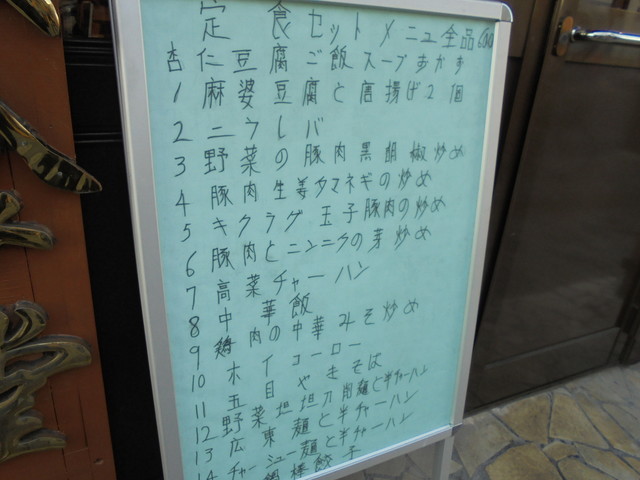 定食セットメニュー全品680
杏仁豆腐ご飯スープおかず
1 麻婆豆腐と唐揚げ2個
2 ニラレバ
3 野菜の豚肉黒胡椒炒め
4 豚肉生姜タマネギの炒め
5 キクラゲ玉子豚肉の炒め
6 豚肉とニンニクの芽炒め
7 高菜チャーハン
8 中華飯
9 鶏肉の中華みそ炒め
10 ホイコーロー
11 五目やきそば
12 野菜坦坦刀削麺と半チャーハン
13 広東麺と半チャーハン
14 チャーシュー麺と半チャーハン
棒餃子